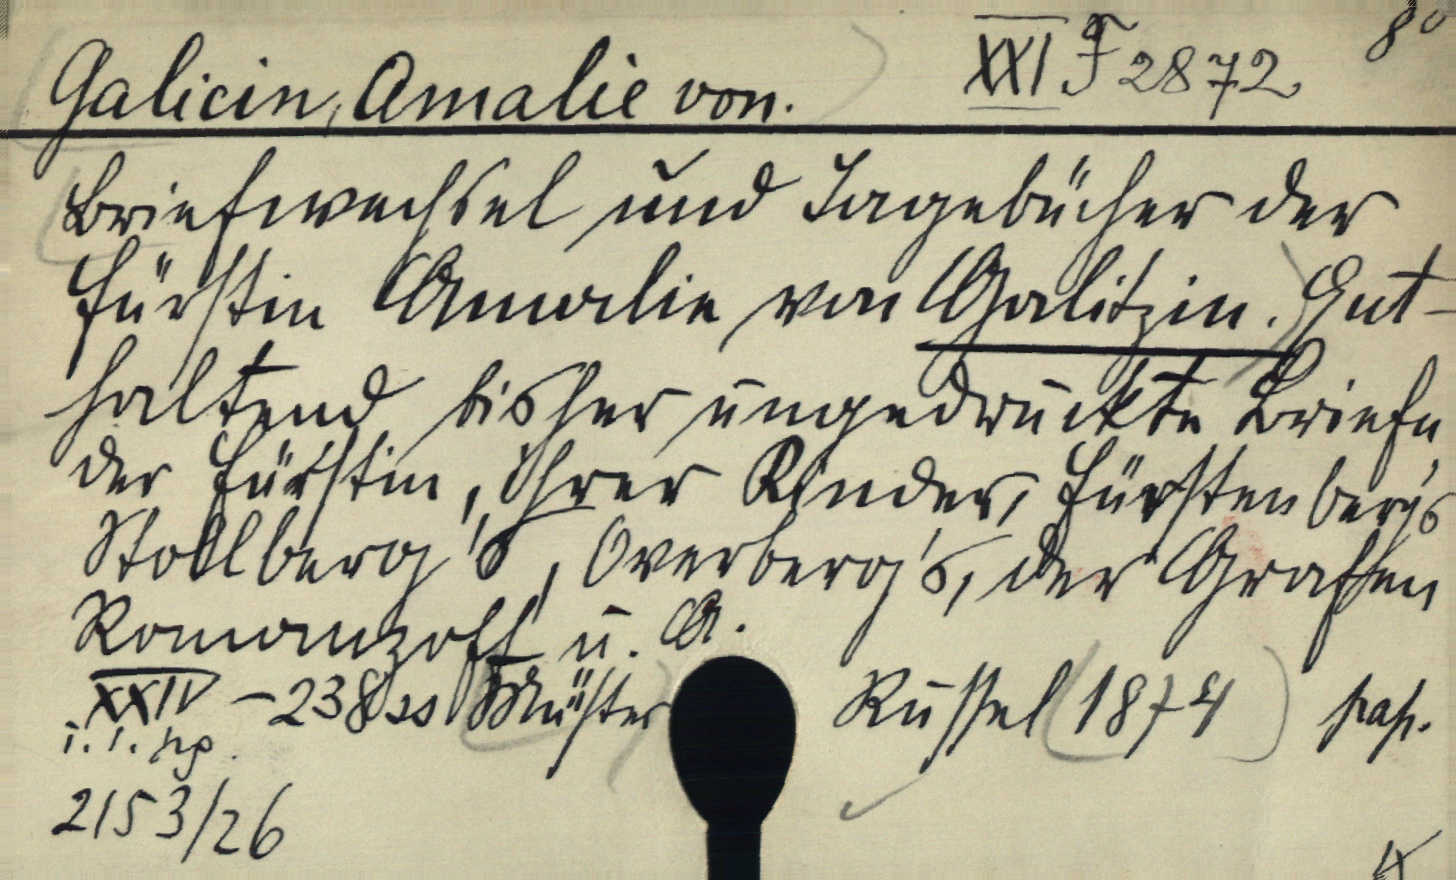 Galicin, Amalie von. XXI F 2872 8°
Briefwechsel und Tagebücher der
Fürstin Amalie von Galitzin. Ent-
haltend bisher ungedruckte Briefe
der Fürstin, ihrer Kinder, Fürstenberg's
Stollberg's, Overberg's, der Grafen
Romanzoff u. A.
XXIV - 238 ss Münster Russel 1874 pap.
2153/26